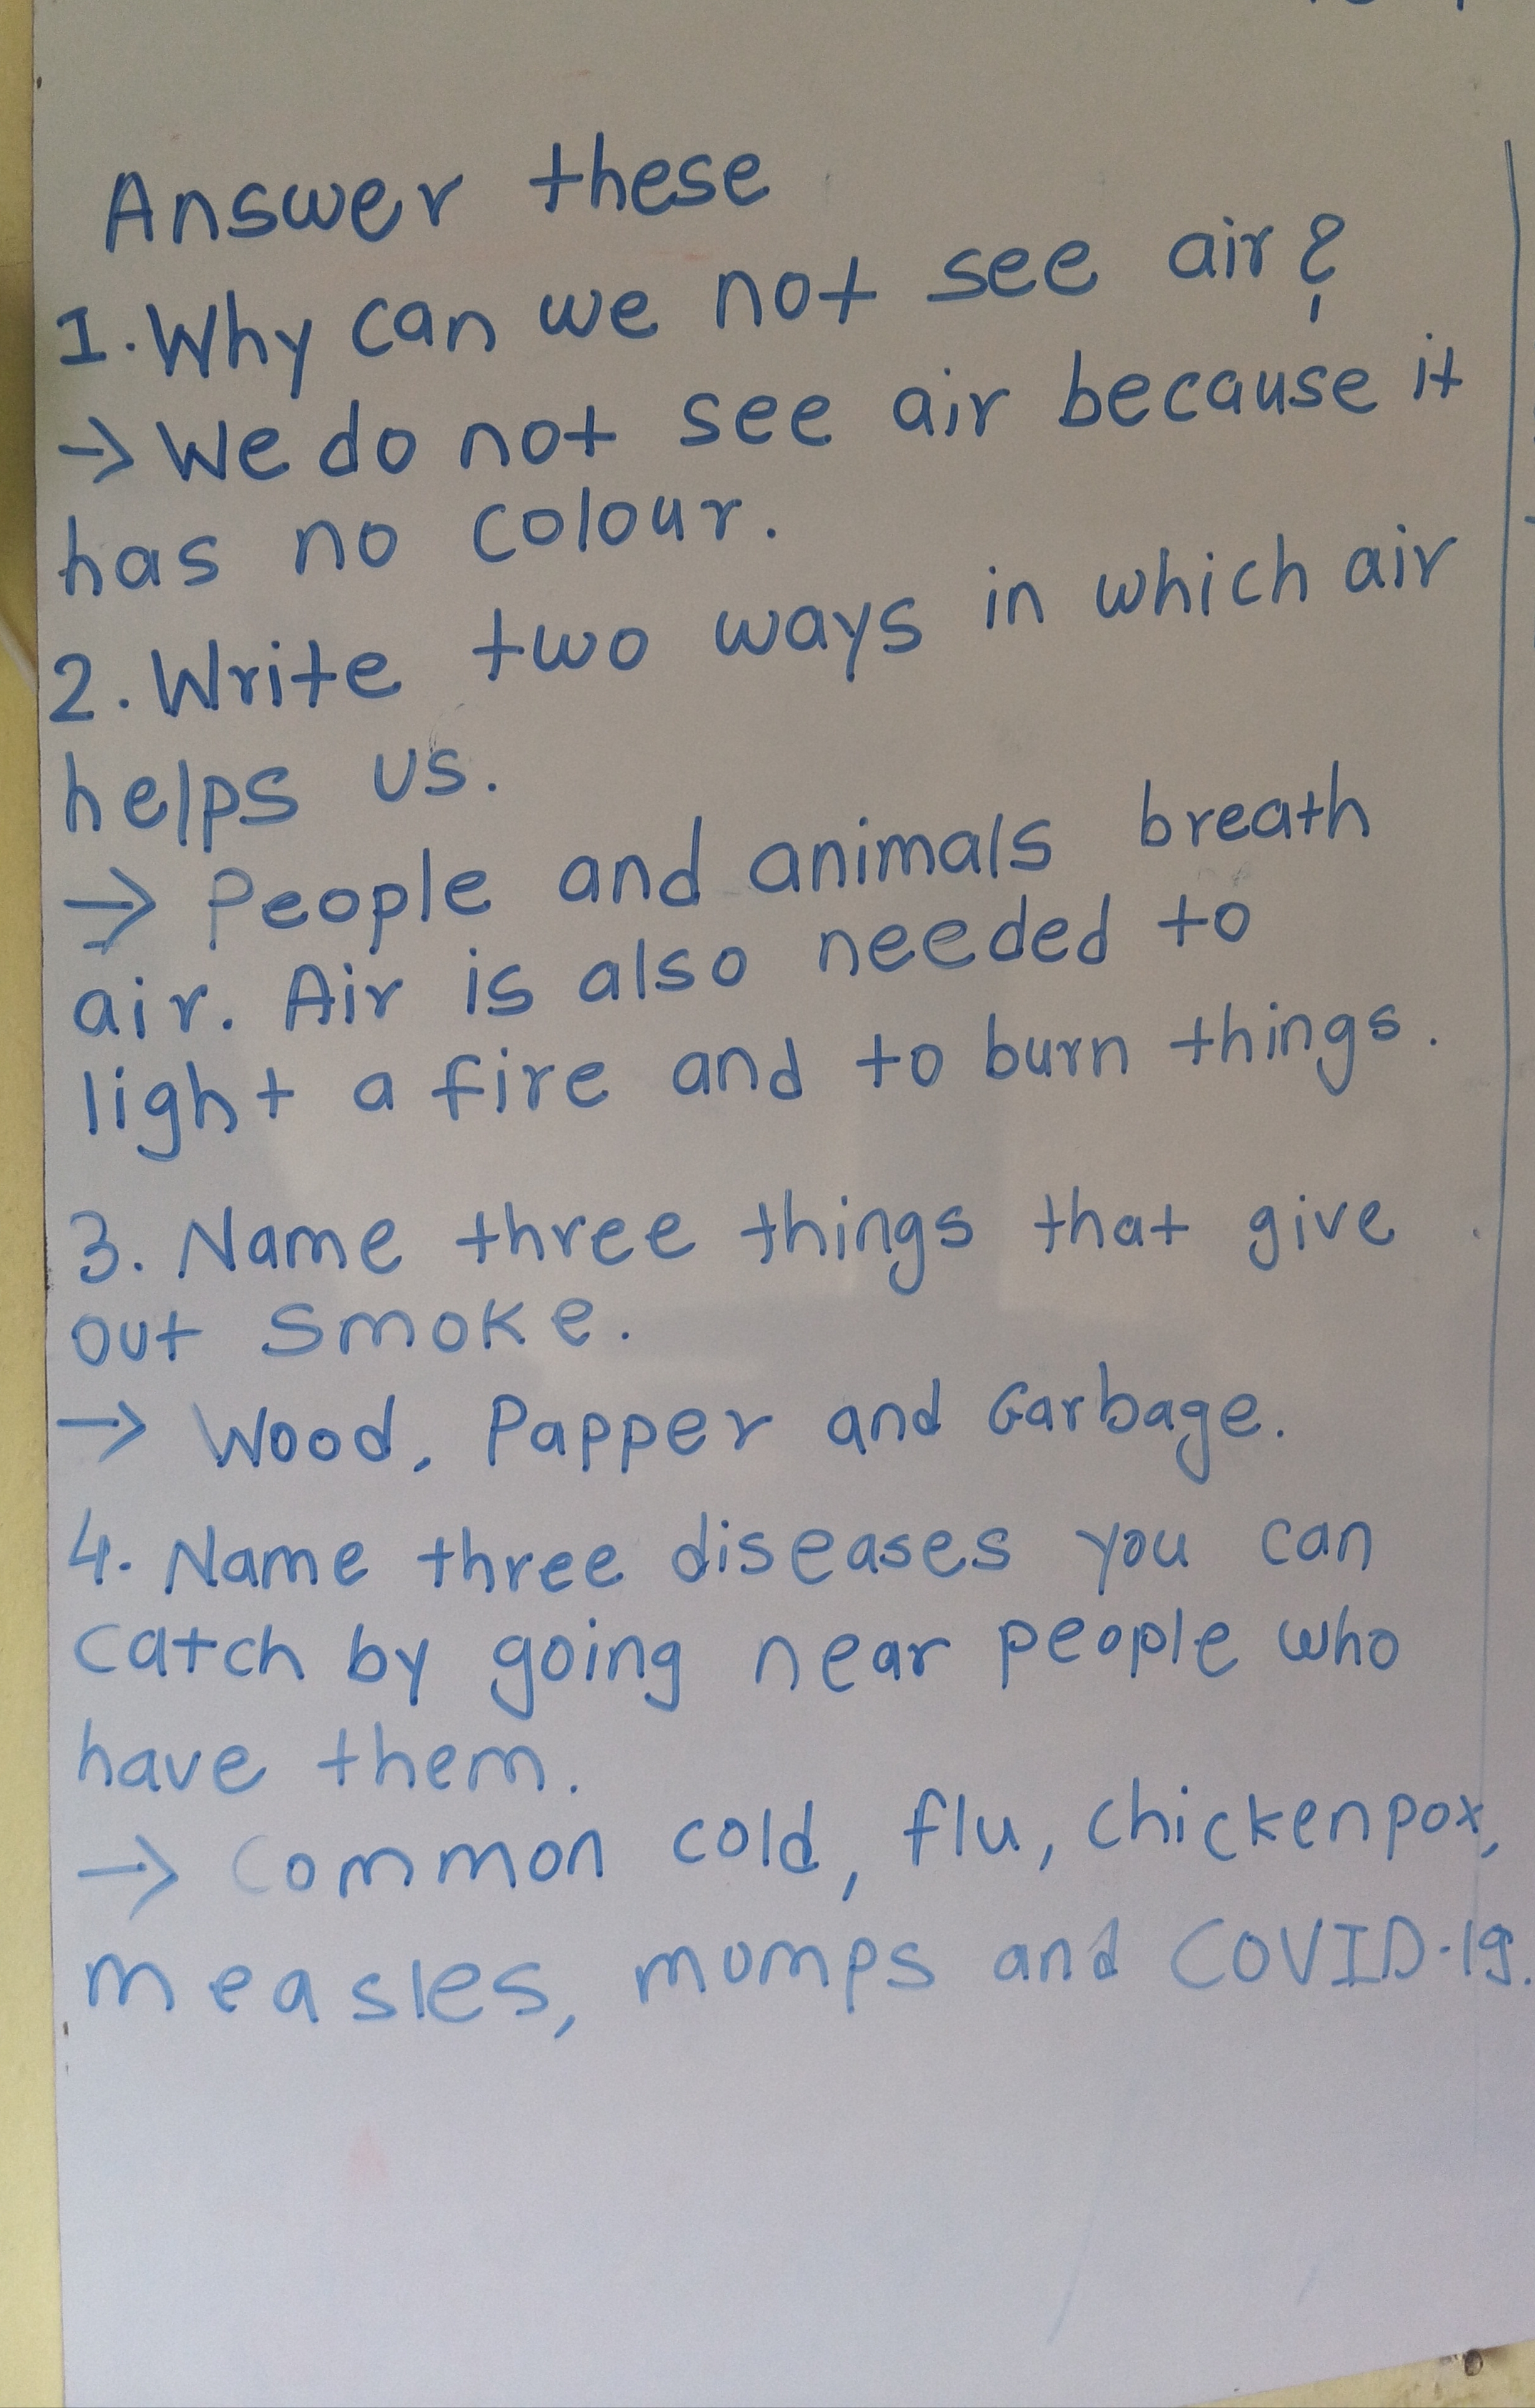 Answer these
1. Why can we not see air?
→ We do not see air because it
has no colour.
2. Write two ways in which air
helps us.
→ People and animals breath
air. Air is also needed to
light a fire and to burn things.
3. Name three things that give
out smoke.
→ Wood, Papper and Garbage.
4. Name three diseases you can
catch by going near people who
have them.
→ Common cold, flu, chickenpox,
measles, mumps and COVID-19.